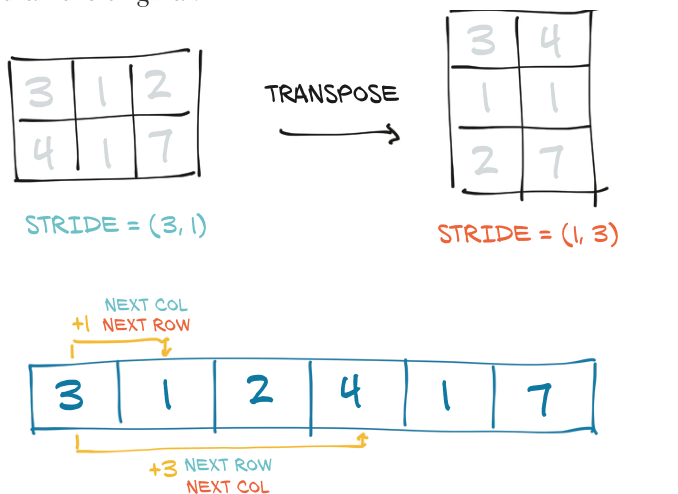 3 1 2
4 1 7
STRIDE = (3, 1)
TRANSPOSE
3 4
1 1
2 7
STRIDE = (1, 3)
+1 NEXT COL
NEXT ROW
3 1 2 4 1 7
+3 NEXT ROW
NEXT COL